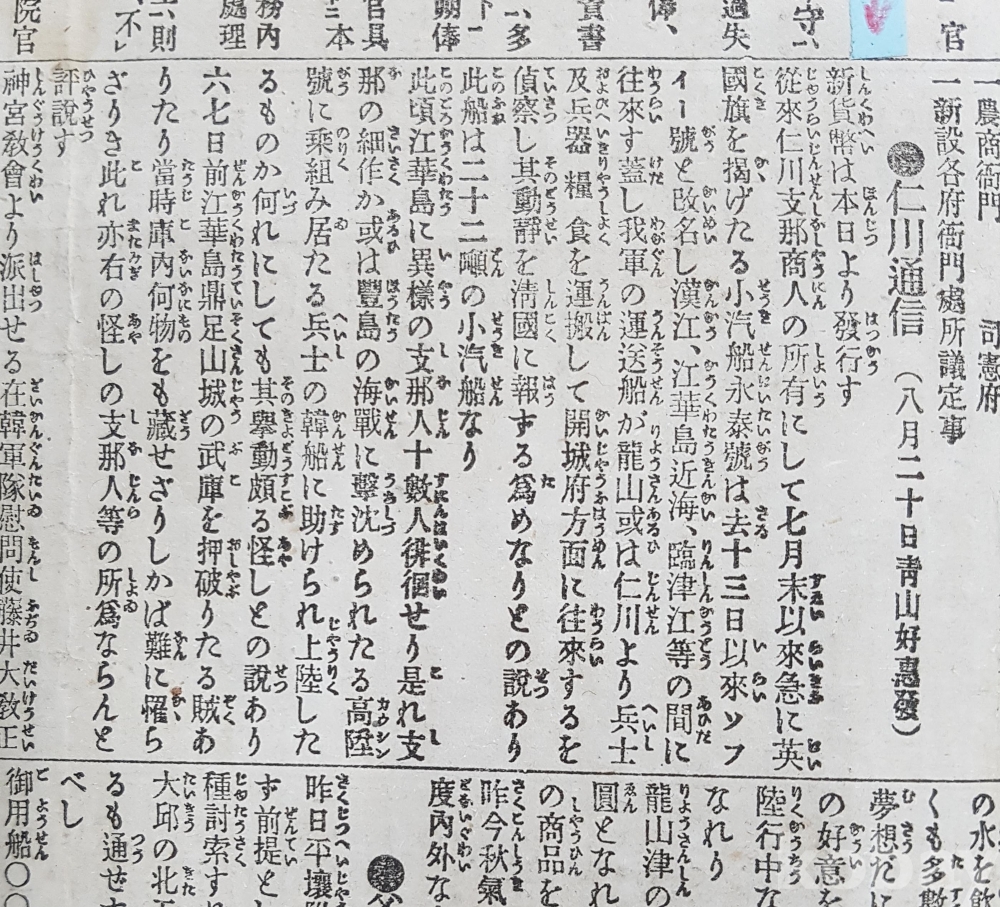 官
過失
守ハ
俸、
責書
ハ多
下一
動俸
官具
三本
務內
處理
ハ則
不レ
院官
一農商衙門　司憲府
一新設各府衙門處所議定事
◉仁川通信（八月二十日靑山好惠發）
新貨幣は本日より發行す
從來仁川支那商人の所有にして七月末以來急に英
國旗を揭げたる小汽船永泰號は去十三日以來ソフ
ィー號と改名し漢江、江華島近海、臨津江等の間に
往來す蓋し我軍の運送船が龍山或は仁川より兵士
及兵器糧食を運搬して開城府方面に往來するを
偵察し其動靜を淸國に報ずる爲めなりとの說あり
此船は二十二噸の小汽船なり
此頃江華島に異樣の支那人十數人徘徊せり是れ支
那の細作か或は豐島の海戰に擊沈められたる高陞
號に乘組み居たる兵士の韓船に助けられ上陸した
るものか何れにしても其擧動頗る怪しとの說あり
六七日前江華島鼎足山城の武庫を押破りたる賊あ
りたり當時庫內何物をも藏せざりしかば難に罹ら
ざりき此れ亦右の怪しの支那人等の所爲ならんと
評說す
神宮敎會より派出せる在韓軍隊慰問使藤井大敎正
の水を飮
くも多數
夢想だに
の好意を
陸行中な
なれり
龍山津の
圓となれ
の商品を
昨今秋氣
度內外な
昨日平壤
ず前提と
種討索す
大邱の北
るも通せ
べし
御用船〇〇